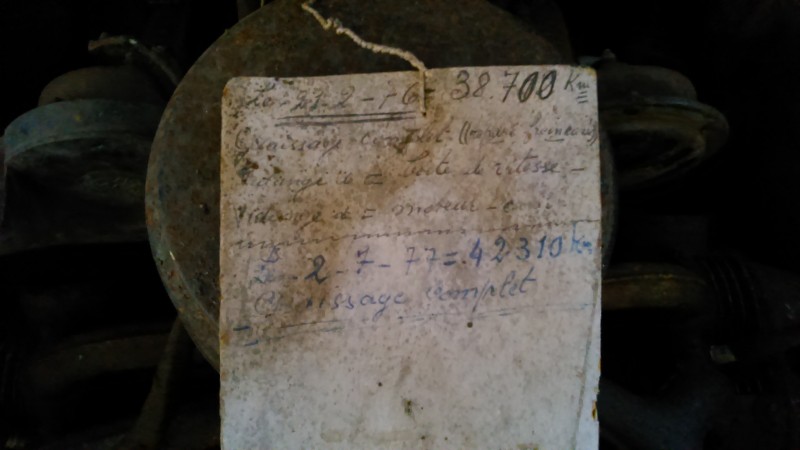 Le - 23-2-76 = 38.700 Km
Graissage complet
Vidange de = boite de vitesse -
Vidange de = moteur -
Le - 2 - 7 - 77 = 42310 km
Graissage complet